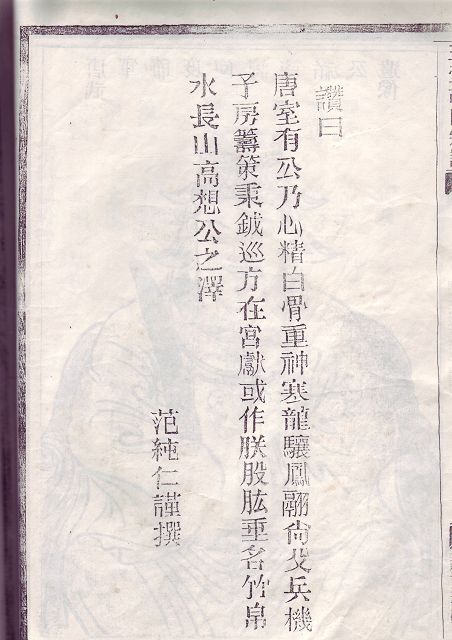 讚曰
唐室有公乃心精白骨重神寒龍驤鳳翮尙父兵機
子房籌策秉鉞巡方在宮獻或作朕股肱垂名竹帛
水長山高想公之澤
范純仁謹撰